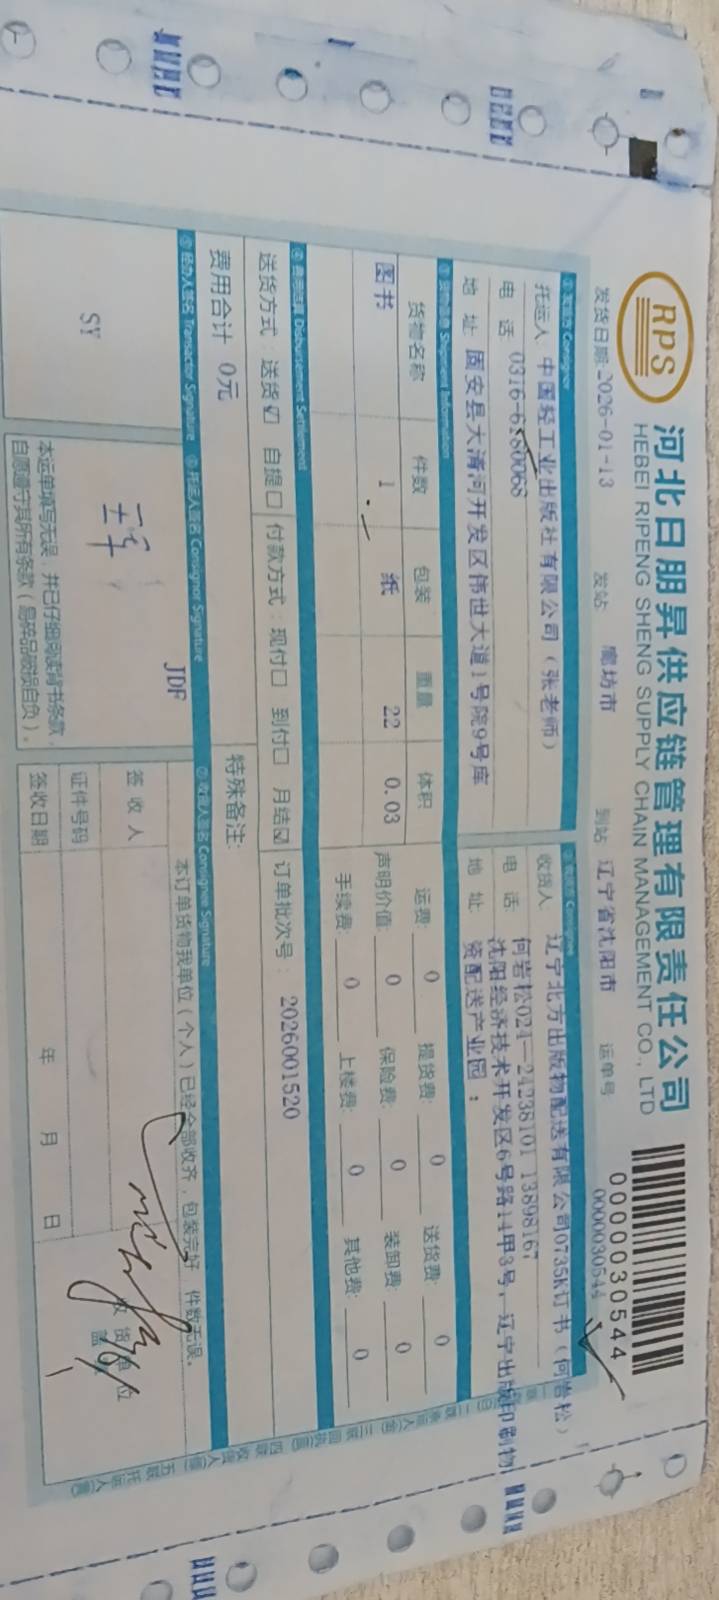 RPS
河北日朋昇供应链管理有限责任公司
HEBEI RIPENG SHENG SUPPLY CHAIN MANAGEMENT CO., LTD
0000030544
发货日期 2026-01-13 发站 廊坊市 到站 辽宁省沈阳市 运单号 0000030544
① 发货方 Consignor
托运人 中国轻工业出版社有限公司（张老师）
电 话 0316-6180068
地 址 固安县大清河开发区伟世大道1号院9号库
② 收货方 Consignee
收货人 辽宁北方出版物配送有限公司0735K订书（何岩松）
电 话: 何岩松024—24238101 13898167
地 址 沈阳经济技术开发区6号路14甲3号，辽宁出版印刷物
资配送产业园：
③ 货物信息 Shipment Information
货物名称 件数 包装 重量 体积
图书 1 纸 22 0.03
运费: 0 提货费: 0 送货费: 0
声明价值: 0 保险费: 0 装卸费: 0
手续费: 0 上楼费: 0 其他费: 0
④ 费用结算 Disbursement Settlement
送货方式：送货☑ 自提口 付款方式：现付口 到付口 月结☑ 订单批次号： 2026001520
费用合计 0元
特殊备注:
⑤ 经办人签名 Transactor Signature
SY
⑥ 托运人签名 Consignor Signature
JDF
本运单填写无误，并已仔细阅读背书条款，
自愿遵守其所有条款（易碎品破损自负）。
⑦ 收货人签名 Consignee Signature
本订单货物我单位（个人）已经全部收齐，包装完好，件数无误。
签 收 人
证件号码
签收日期 年 月 日